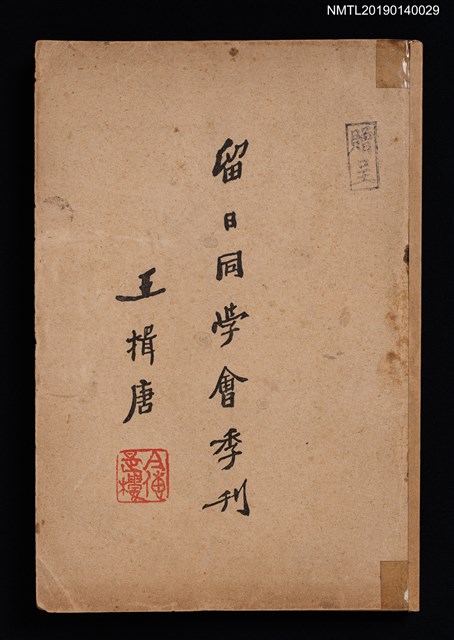 NMTL20190140029
贈呈
留日同學會季刊
王揖唐
今傳是樓